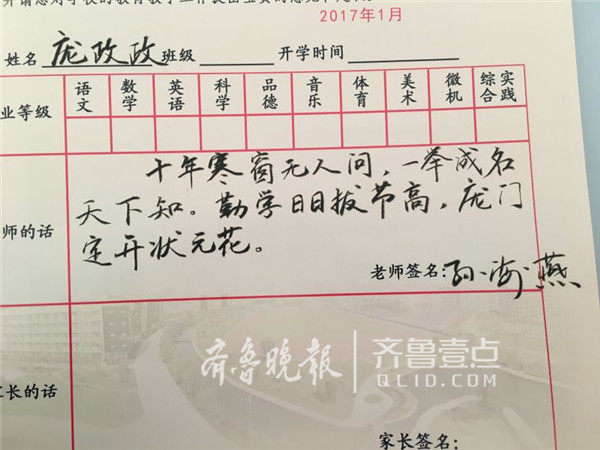 2017年1月
姓名 庞政政 班级 开学时间
业等级 语文 数学 英语 科学 品德 音乐 体育 美术 微机 综合实践
师的话
十年寒窗无人问，一举成名
天下知。勤学日日拔节高，庞门
定开状元花。
老师签名：孙海燕
齐鲁晚报 齐鲁壹点
QLID.COM
长的话
家长签名：